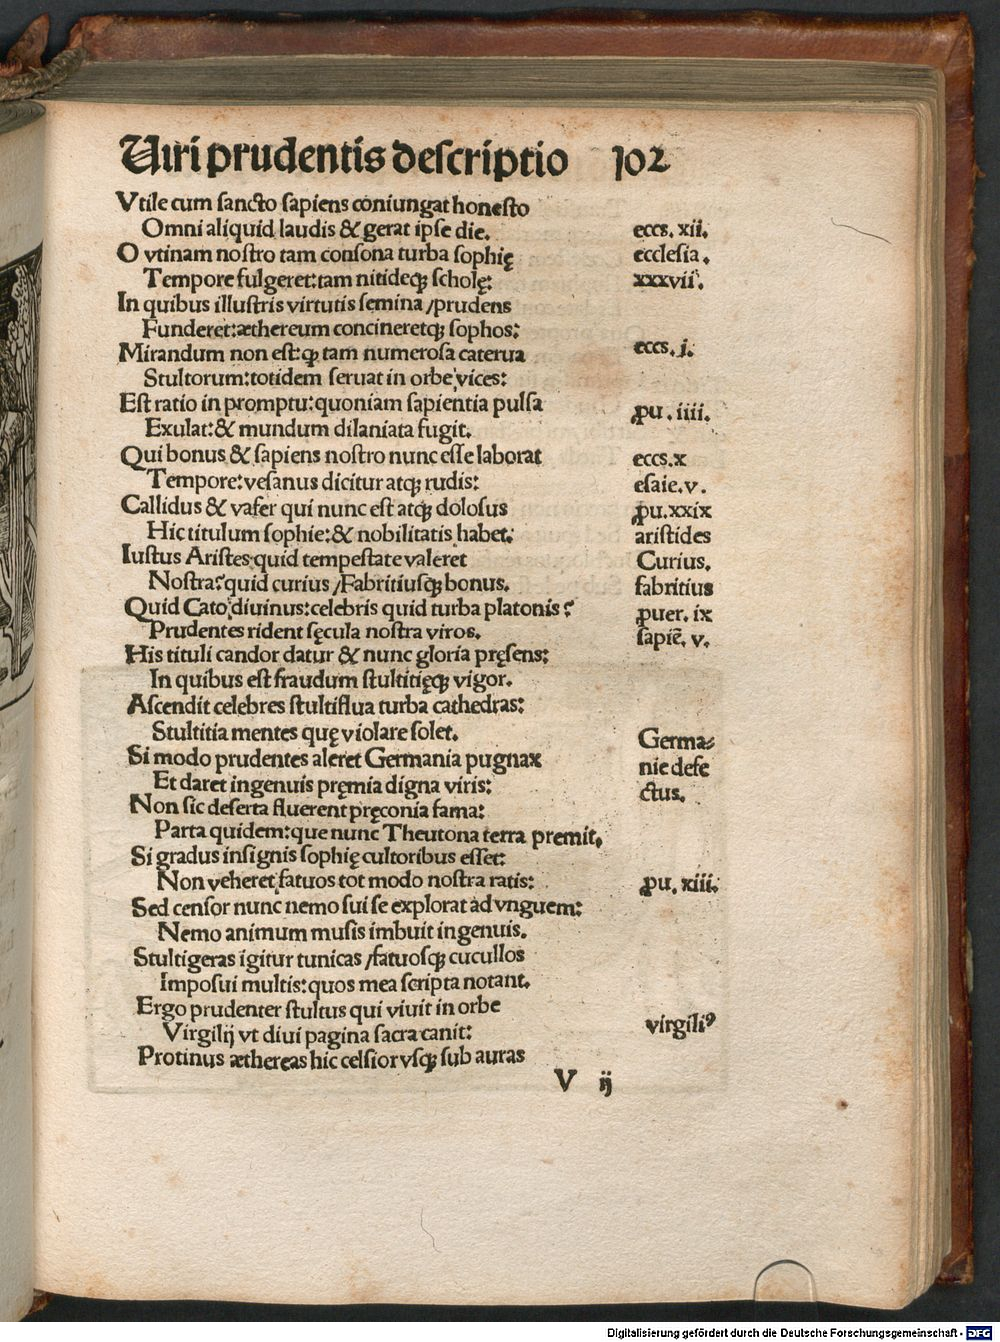 Viri prudentis descriptio 102
Vtile cum sancto sapiens coniungat honesto
Omni aliquid laudis & gerat ipse die. eccs. xii.
O vtinam nostro tam consona turba sophię ecclesia.
Tempore fulgeret: tam nitideq; scholę: xxxvii.
In quibus illustris virtutis semina / prudens
Funderet: æthereum concineretq; sophos:
Mirandum non est: ꝙ tam numerosa caterua eccs. j.
Stultorum: totidem seruat in orbe vices:
Est ratio in promptu: quoniam sapientia pulsa ꝓu. iiii.
Exulat: & mundum dilaniata fugit.
Qui bonus & sapiens nostro nunc esse laborat eccs. x
Tempore: vesanus dicitur atq; rudis: esaie. v.
Callidus & vafer qui nunc est atq; dolosus ꝓu. xxix
Hic titulum sophie: & nobilitatis habet: aristides
Iustus Aristes quid tempestate valeret Curius.
Nostra? quid curius / Fabritiusq; bonus. fabritius
Quid Cato diuinus: celebris quid turba platonis? ꝓuer. ix
Prudentes rident sęcula nostra viros. sapiē. v.
His tituli candor datur & nunc gloria pręsens:
In quibus est fraudum stultitięq; vigor.
Ascendit celebres stultiflua turba cathedras:
Stultitia mentes quę violare solet. Germa⸗
Si modo prudentes aleret Germania pugnax nie defe
Et daret ingenuis pręmia digna viris: ctus.
Non sic deserta fluerent pręconia fama:
Parta quidem: que nunc Theutona terra premit.
Si gradus insignis sophię cultoribus esset:
Non veheret fatuos tot modo nostra ratis: ꝓu. xiii.
Sed censor nunc nemo sui se explorat ad vnguem:
Nemo animum musis imbuit ingenuis.
Stultigeras igitur tunicas / fatuosq; cucullos
Imposui multis: quos mea scripta notant.
Ergo prudenter stultus qui viuit in orbe
Virgilij vt diui pagina sacra canit: virgiliꝰ
Protinus æthereas hic celsior vsq; sub auras
V ij
Digitalisierung gefördert durch die Deutsche Forschungsgemeinschaft - DFG